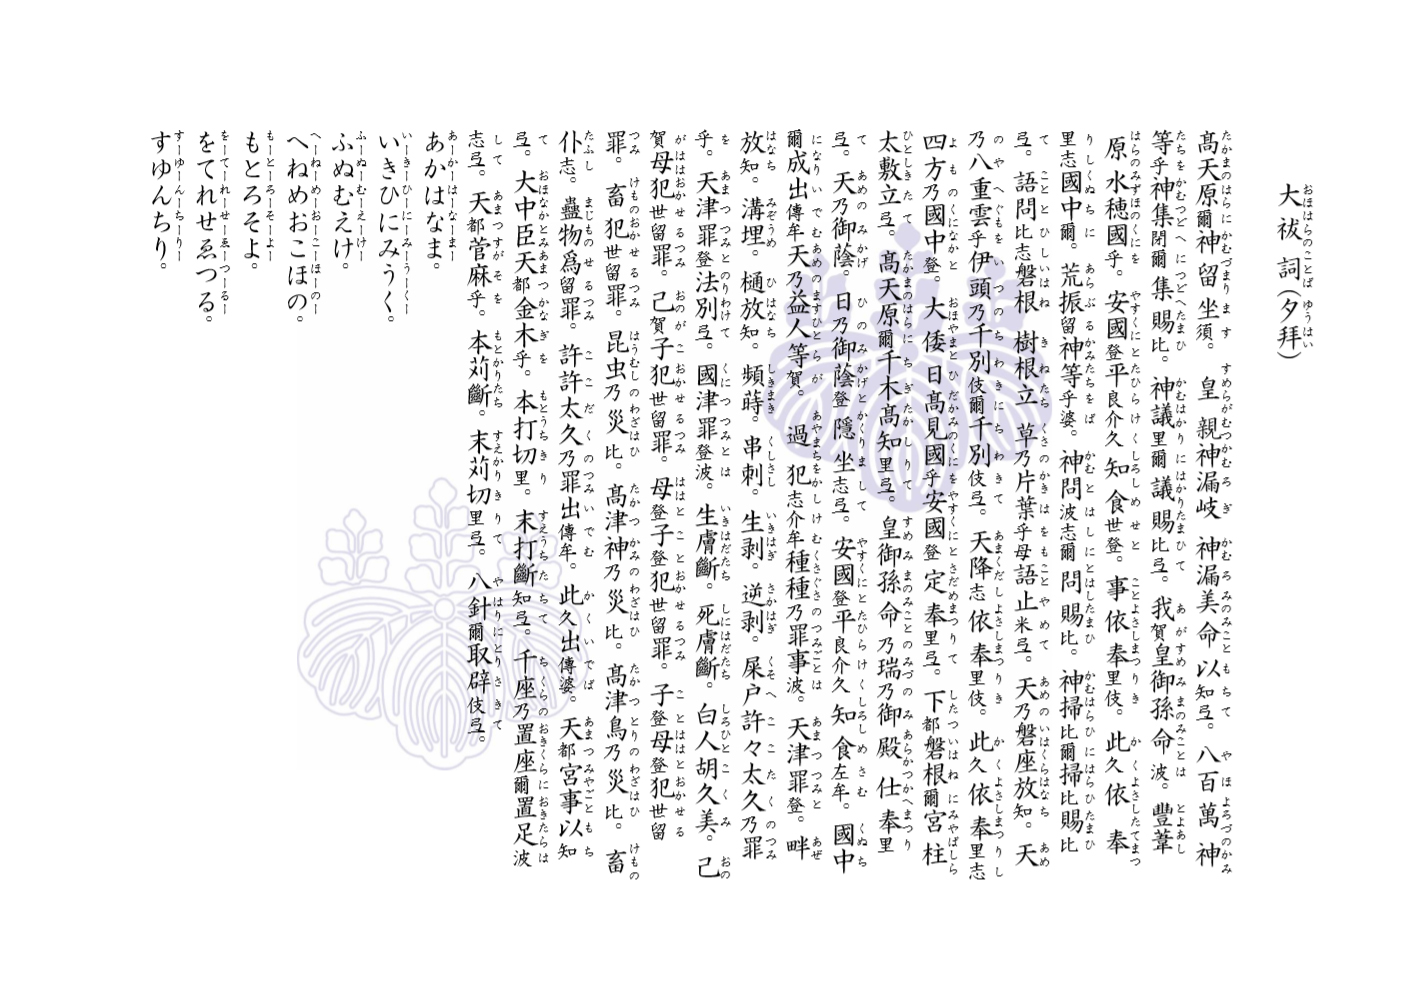 大祓詞(夕拜)
高天原爾神留坐須。皇親神漏岐神漏美命以知弖。八百萬神
等乎神集閉爾集賜比。神議里爾議賜比弖。我賀皇御孫命波。豐葦
原水穗國乎。安國登平良介久知食世登。事依奉里伎。此久依奉
里志國中爾。荒振留神等乎婆。神問波志爾問賜比。神掃比爾掃比賜比
弖。語問比志磐根樹根立草乃片葉乎母語止米弖。天乃磐座放知。天
乃八重雲乎伊頭乃千別伎爾千別伎弖。天降志依奉里伎。此久依奉里志
四方乃國中登。大倭日高見國乎安國登定奉里弖。下都磐根爾宮柱
太敷立弖。高天原爾千木高知里弖。皇御孫命乃瑞乃御殿仕奉里
弖。天乃御蔭。日乃御蔭登隱坐志弖。安國登平良介久知食左牟。國中
爾成出傳牟天乃益人等賀。過犯志介牟種種乃罪事波。天津罪登。畔
放知。溝埋。樋放知。頻蒔。串刺。生剥。逆剥。屎戸許々太久乃罪
乎。天津罪登法別弖。國津罪登波。生膚斷。死膚斷。白人胡久美。己
賀母犯世留罪。己賀子犯世留罪。母登子登犯世留罪。子登母登犯世留
罪。畜犯世留罪。昆虫乃災比。高津神乃災比。高津鳥乃災比。畜
仆志。蠱物爲留罪。許許太久乃罪出傳牟。此久出傳婆。天都宮事以知
弖。大中臣天都金木乎。本打切里。末打斷知弖。千座乃置座爾置足波
志弖。天都菅麻乎。本苅斷。末苅切里弖。八針爾取辟伎弖。
あかはなま。
いきひにみうく。
ふぬむえけ。
へねめおこほの。
もとろそよ。
をてれせゑつる。
すゆんちり。